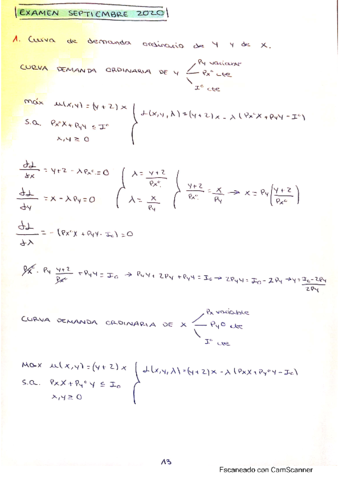 EXAMEN SEPTIEMBRE 2020
1. Curva de demanda ordinaria de Y y de X.
CURVA DEMANDA ORDINARIA DE Y
Py variable
Px° cte
I° cte
máx u(x,y) = (y+2)x
s.a. Px°X + PyY ≤ I°
x,y ≥ 0
L(x,y,λ) = (y+2)x - λ(Px°X + PyY - I°)
dL/dx = y+2 - λPx° = 0
λ = y+2/Px°
dL/dy = x - λPy = 0
λ = x/Py
y+2/Px° = x/Py → x = Py(y+2/Px°)
dL/dλ = -(Px°X + PyY - I0) = 0
Px° · Py y+2/Px° + PyY = I0 → PyY + 2Py + PyY = I0 → 2PyY = I0 - 2Py → Y = I0 - 2Py/2Py
CURVA DEMANDA ORDINARIA DE X
Px variable
Py° cte
I° cte
Max u(x,y) = (y+2)x
s.a. PxX + Py°Y ≤ I0
x,y ≥ 0
L(x,y,λ) = (y+2)x - λ(PxX + Py°Y - I0)
13
Escaneado con CamScanner